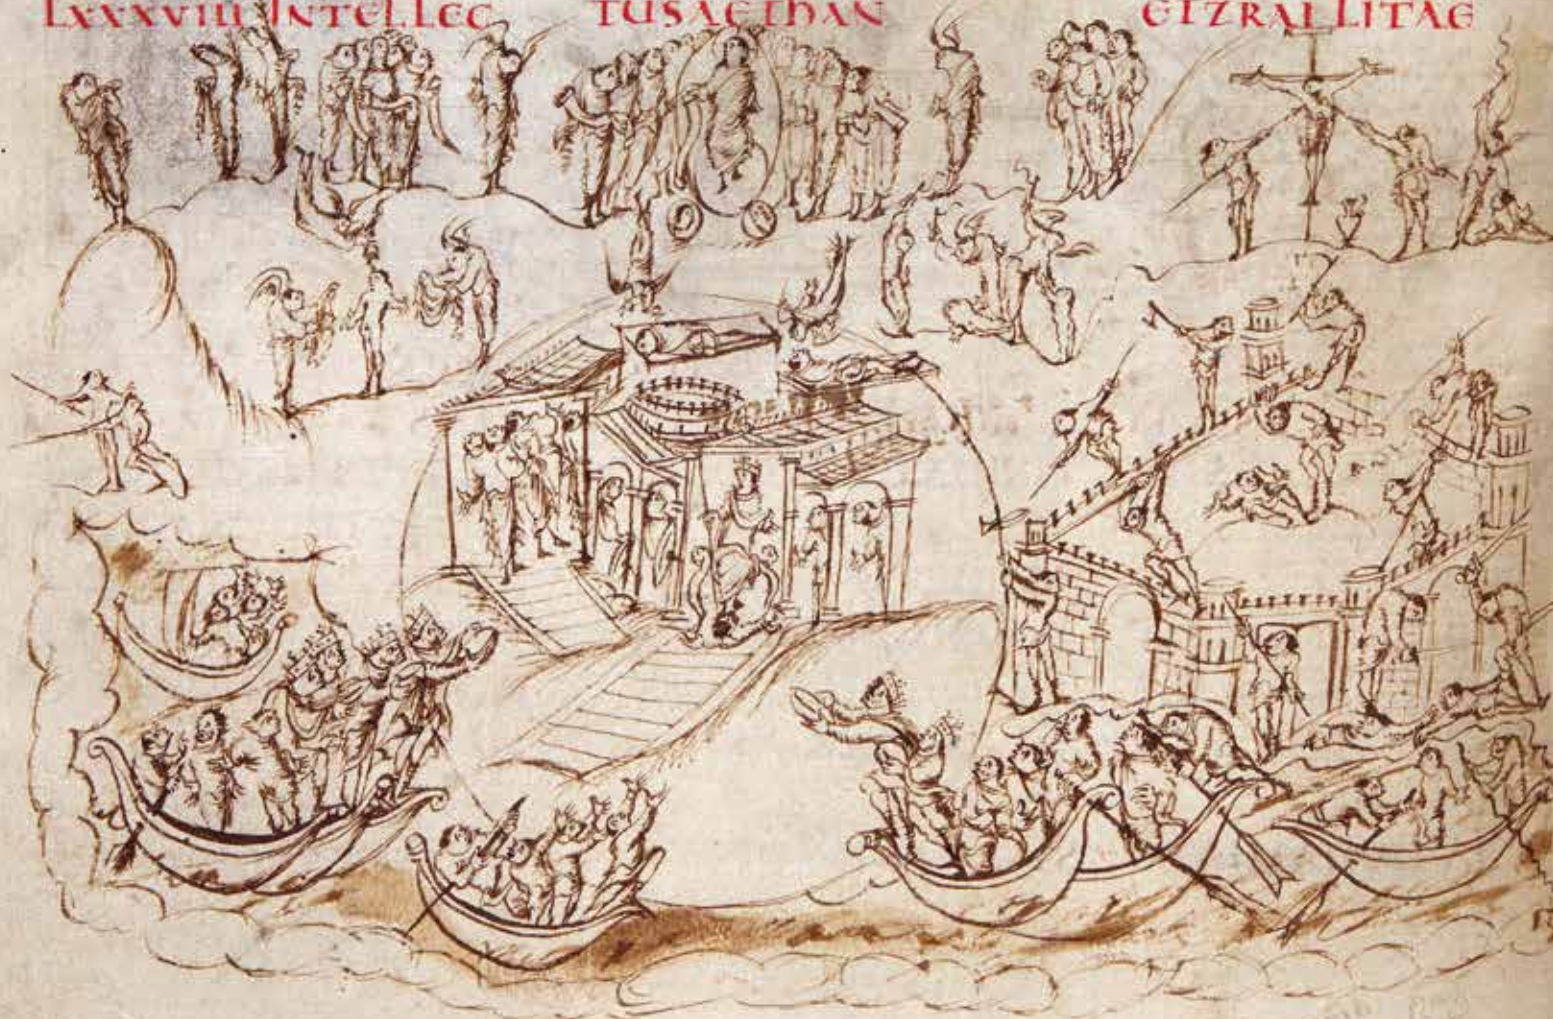 LXXXVIII INTELLECTUS AETHAN ETZRALLITAE